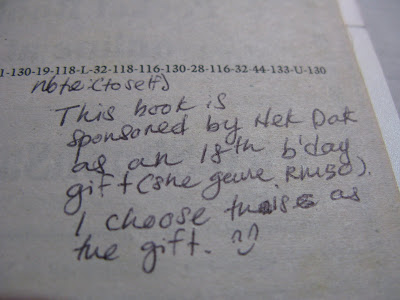 1-130-19-118-L-32-118-116-130-28-116-32-44-133-U-130
note:(to self)
This book is
sponsored by Nek Dak
as an 18th b'day
gift (she gave RM50).
I choose this as
the gift. :)